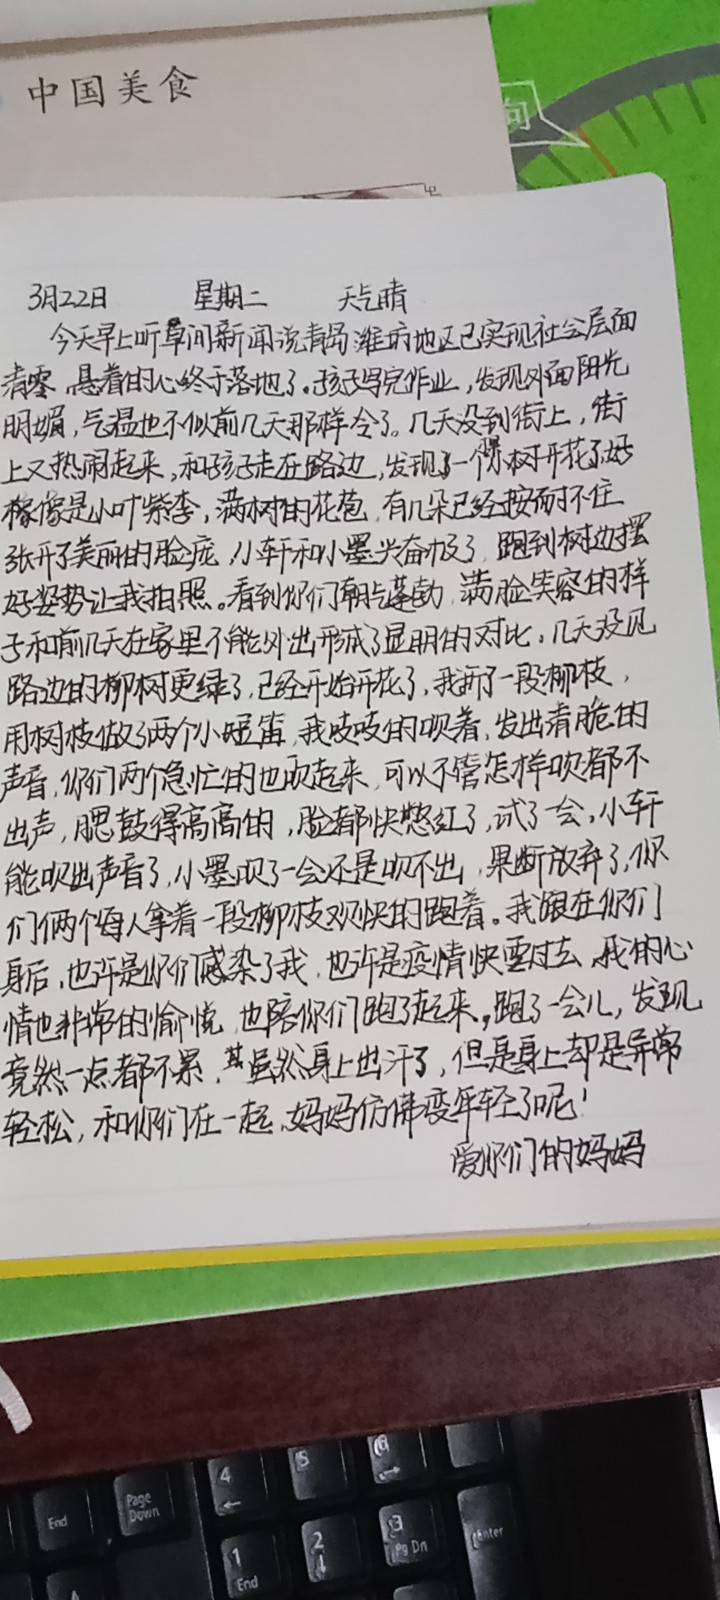 中国美食
3月22日 星期二 天气晴
今天早上听早间新闻说青岛潍坊地区已实现社会层面
清零,悬着的心终于落地了。孩子写完作业,发现外面阳光
明媚,气温也不似前几天那样冷了。几天没到街上,街
上又热闹起来,和孩子走在路边,发现了一棵树开花了好
像是小叶紫李,满树的花苞,有几朵已经按耐不住
张开了美丽的脸庞,小轩和小墨兴奋极了,跑到树边摆
好姿势让我拍照。看到你们朝气蓬勃,满脸笑容的样
子和前几天在家里不能外出形成了显明的对比,几天没见
路边的柳树更绿了,已经开始开花了,我折了一段柳枝,
用树枝做了两个小短笛,我吱吱的吹着,发出清脆的
声音,你们两个急忙的也吹起来,可以不管怎样吹都不
出声,腮鼓得高高的,脸都快憋红了,试了一会,小轩
能吹出声音了,小墨吹了一会还是吹不出,果断放弃了,你
们俩个每人拿着一段柳枝欢快的跑着。我跟在你们
身后,也许是你们感染了我,也许是疫情快要过去,我的心
情也非常的愉悦,也陪你们跑了起来。跑了一会儿,发现
竟然一点都不累,虽然身上出汗了,但是身上却是异常
轻松,和你们在一起,妈妈仿佛变年轻了呢!
爱你们的妈妈
4
5
6
End
Page Down
1 End
2
3 Pg Dn
Enter